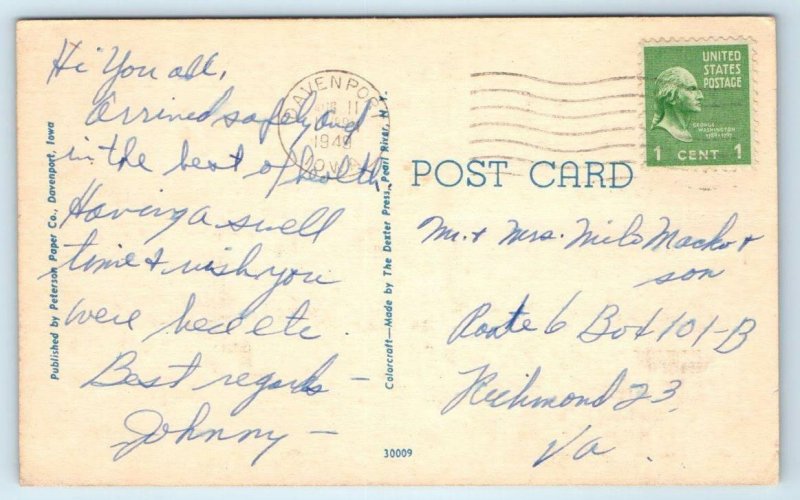 Hi You all,
Arrived safely and
in the best of health,
Having a swell
time & wish you
were here etc.
Best regards –
Johnny –
Published by Peterson Paper Co., Davenport, Iowa
Colorcraft—Made by The Dexter Press, Pearl River, N.Y.
30009
DAVENPORT
11
1949
IOWA
UNITED
STATES
POSTAGE
GEORGE
WASHINGTON
1 CENT 1
POST CARD
Mr. & Mrs. Milo Macko &
son
Route 6 Box 101-B
Richmond 23,
Va.